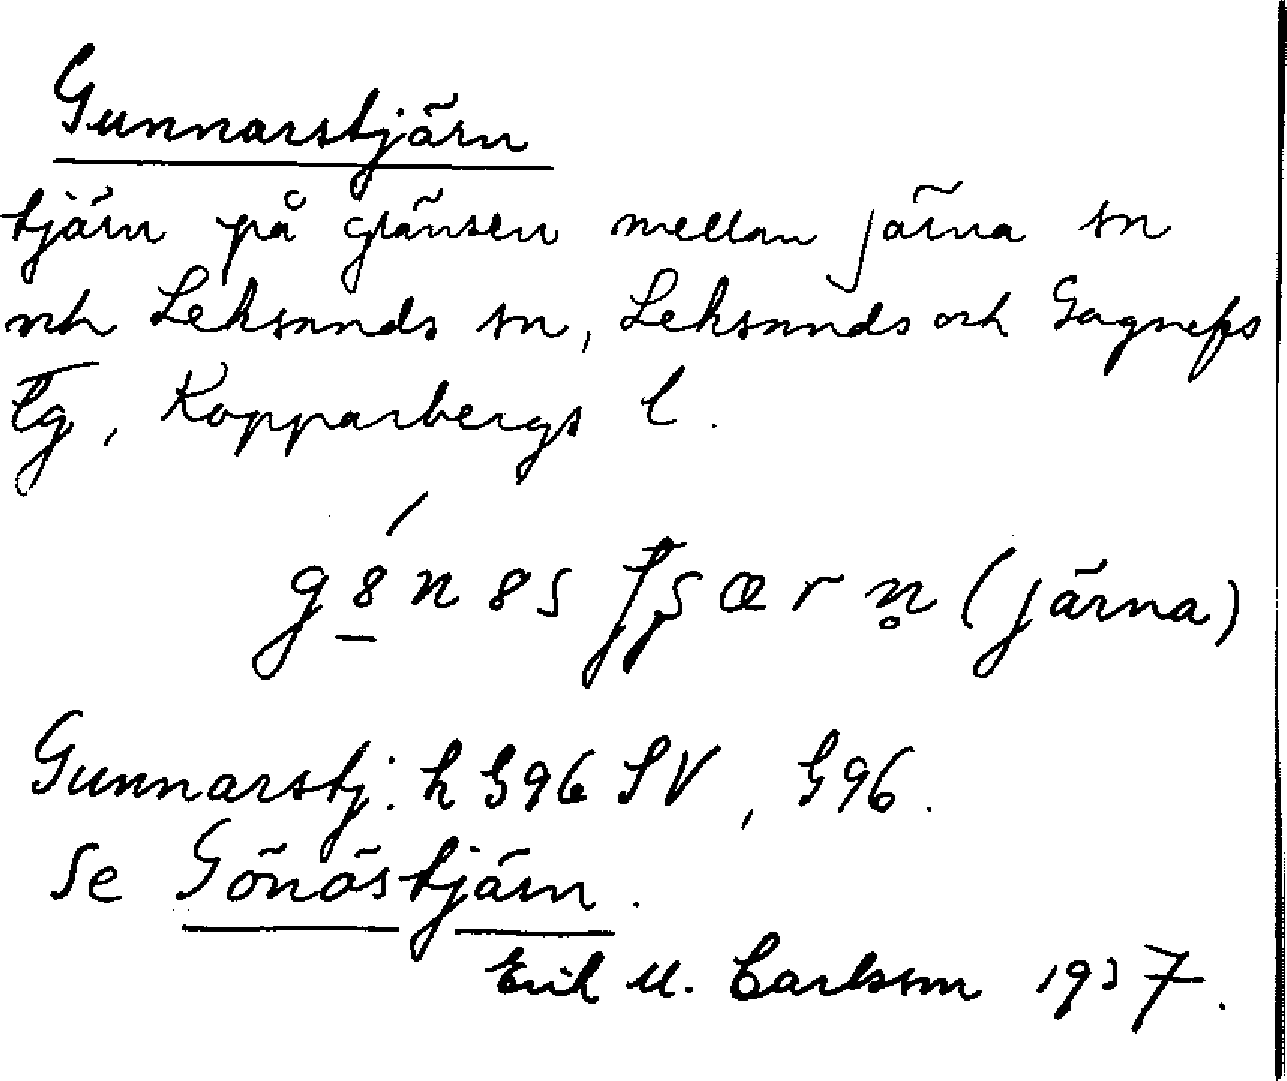 Gunnarstjärn
tjärn på gränsen mellan Järna sn
och Leksands sn, Leksands och Gagnefs
tg, Kopparbergs l.
(Järna)
Gunnarstj: k G96 SV, G96.
Se Gönöstjärn.
Erik M. Carlsson 1937.